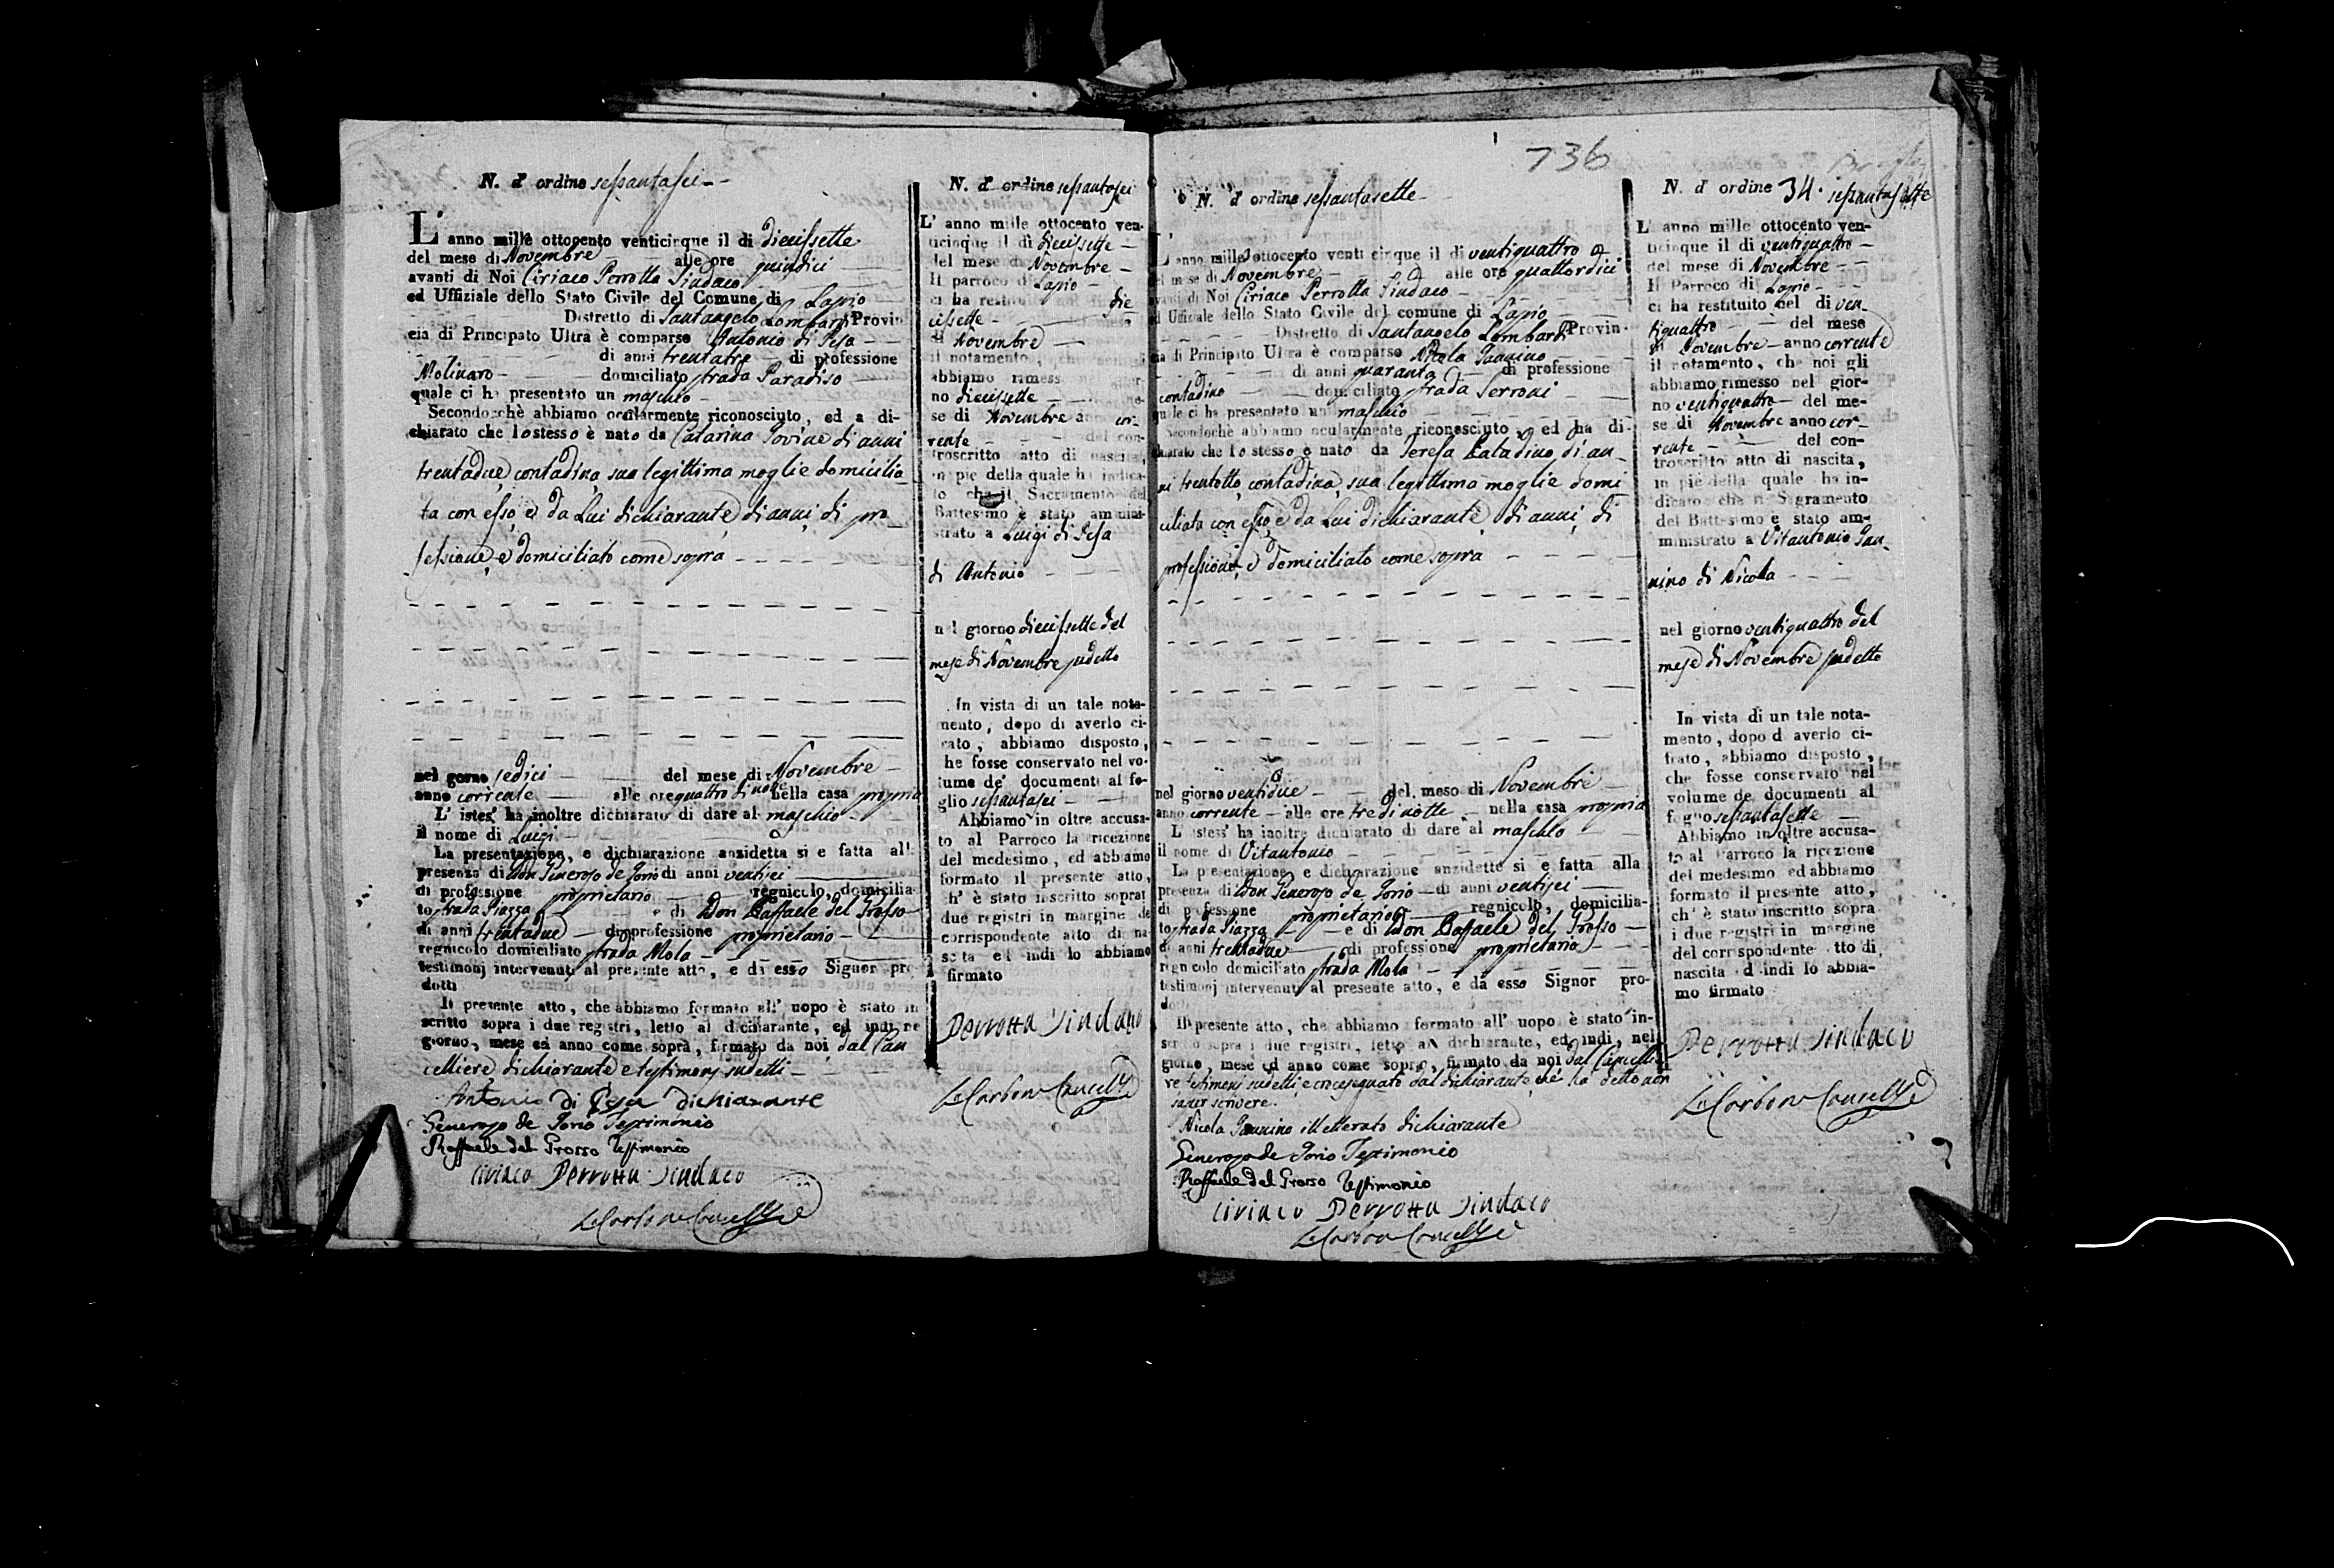 N. d' ordine sessantasei
L' anno mille ottocento venticinque il di diecissette
del mese di Novembre alle ore quindici
avanti di Noi Ciriaco Perrotta Sindaco
ed Uffiziale dello Stato Civile del Comune di Lapio
Distretto di Santangelo Lombardi Provin
cia di Principato Ultra è comparso Antonio di Gesa
di anni trentatre di professione
Molinaro domiciliato strada Paradiso
quale ci ha presentato un maschio
Secondocchè abbiamo ocularmente riconosciuto, ed a di-
chiarato che lo stesso è nato da Catarina Iovine di anni
trentadue, contadina, sua legittima moglie domicilia
ta con esso, e da Lui dichiarante di anni, di pro
fessione, e domiciliato come sopra
nel gorno sedici del mese di Novembre
anno corrente alle ore quattro di notte nella casa propria
L' istes' ha inoltre dichiarato di dare al maschio
il nome di Luigi
La presentazione, e dichiarazione anzidetta si e fatta all'
presenza di Don Generoso de Iorio di anni ventisei
di professione proprietario regnicolo, domicilia-
to strada Piazza e di Don Raffaele del Grosso
di anni trentadue di professione proprietario
regnicolo domiciliato strada Mola
testimonj intervenuti al presente atto, e di esso Signor pro
dotti
Il presente atto, che abbiamo formato all' uopo è stato in
scritto sopra i due registri, letto al dichiarante, ed indi ne
giorno, mese ed anno come sopra, firmato da noi dal Can
celliere, dichiarante e testimonj sudetti
Antonio di Gesa dichiarante
Generoso de Iorio Testimonio
Raffaele del Grosso Testimonio
Ciriaco Perrotta Sindaco
N. d' ordine sessantasei
L' anno mille ottocento ven-
ticinque il di diecissette
del mese di Novembre
Il parroco di Lapio
ci ha restituito die
cissette
di Novembre
il notamento, che
abbiamo rimess
no diecissette
se di Novembre anno cor-
rente del con-
troscritto atto di nascita,
in pie della quale ha indica-
to che il Sacramento del
Battesimo è stato ammini-
strato a Luigi di Gesa
di Antonio
nel giorno diecissette del
mese di Novembre sudetto
In vista di un tale nota-
mento, dopo di averlo ci-
rato, abbiamo disposto,
he fosse conservato nel vo-
lume de' documenti al fo-
glio sessantasei
Abbiamo in oltre accusa-
to al Parroco la ricezione
del medesimo, ed abbiamo
formato il presente atto,
ch' è stato inscritto sopra
due registri in margine de
corrispondente atto di na
scita ed indi lo abbiamo
firmato
Perrotta Sindaco
736
N. d' ordine sessantasette
L' anno mille ottocento venti cinque il di ventiquattro
del mese di Novembre alle ore quattordici
avanti di Noi Ciriaco Perrotta Sindaco
ed Uffizale dello Stato Civile del comune di Lapio
Distretto di Santangelo Lombardi Provin-
cia di Principato Ultra è comparso Nicola Iannino
di anni quaranta di professione
contadino domiciliato strada Serroni
quale ci ha presentato un maschio
Secondochè abbiamo ocularmente riconosciuto, ed ha di-
chiarato che lo stesso è nato da Teresa Caladino, di an
ni trentotto, contadina, sua legittima moglie domi
ciliata con esso, e da Lui dichiarante di anni, di
professione, e domiciliato come sopra
nel giorno ventidue del meso di Novembre
anno corrente alle ore tre di notte nella casa propria
L' istess' ha inoltre dichiarato di dare al maschio
il nome di Vitantonio
La presentazione e dichiarazione anzidetta si e fatta alla
presenza di Don Generoso de Iorio di anni ventisei
di professione proprietario regnicolo, domicilia-
to strada Piazza e di Don Raffaele del Grosso
di anni trentadue di professione proprietario
regnicolo domiciliato strada Mola
testimonj intervenuti al presente atto, e da esso Signor pro-
dotti
Il presente atto, che abbiamo formato all' uopo è stato in-
scritto sopra i due registri, letto al dichiarante, ed indi, nel
giorno, mese ed anno come sopra, firmato da noi dal Cancellie
re testimonj sudetti, e crocesegnato dal dichiarante, che ha detto non
saper scrivere.
Nicola Iannino illetterato dichiarante
Generoso de Iorio Testimonio
Raffaele del Grosso Testimonio
Ciriaco Perrotta Sindaco
N. d' ordine 34. sessantasette
L' anno mille ottocento ven-
ticinque il di ventiquattro
del mese di Novembre
Il Parroco di Lapio
ci ha restituito nel di ven
tiquattro del mese
di Novembre anno corrente
il notamento, che noi gli
abbiamo rimesso nel gior-
no ventiquattro del me-
se di Novembre anno cor-
rente del con-
troscritto atto di nascita,
in piè della quale ha in-
dicato che il Sagramento
del Battesimo e stato am-
ministrato a Vitantonio Ian
nino di Nicola
nel giorno ventiquattro del
mese di Novembre sudetto
In vista di un tale nota-
mento, dopo d averlo ci-
frato, abbiamo disposto,
che fosse conservato nel
volume de documenti al
foglio sessantasette
Abbiamo in oltre accusa-
to al Parroco la ricezione
del medesimo ed abbiamo
formato il presente atto,
ch' è stato inscritto sopra
i due registri in margine
del corrispondente atto di
nascita ed indi lo abbia-
mo firmato
Perrotta Sindaco